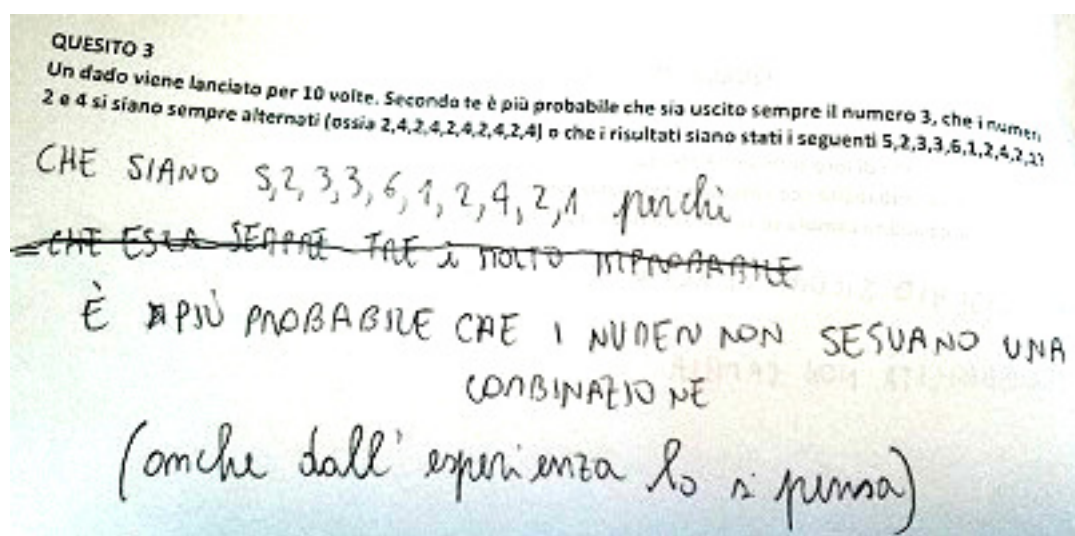 QUESITO 3
Un dado viene lanciato per 10 volte. Secondo te è più probabile che sia uscito sempre il numero 3, che i numeri
2 e 4 si siano sempre alternati (ossia 2,4,2,4,2,4,2,4,2,4) o che i risultati siano stati i seguenti 5,2,3,3,6,1,2,4,2,1?
CHE SIANO 5,2,3,3,6,1,2,4,2,1 perchì
CHE ESCA SEMPRE TRE è MOLTO IMPROBABILE
È PIÙ PROBABILE CHE I NUMERI NON SEGUANO UNA
COMBINAZIONE
(anche dall'esperienza lo si pensa)